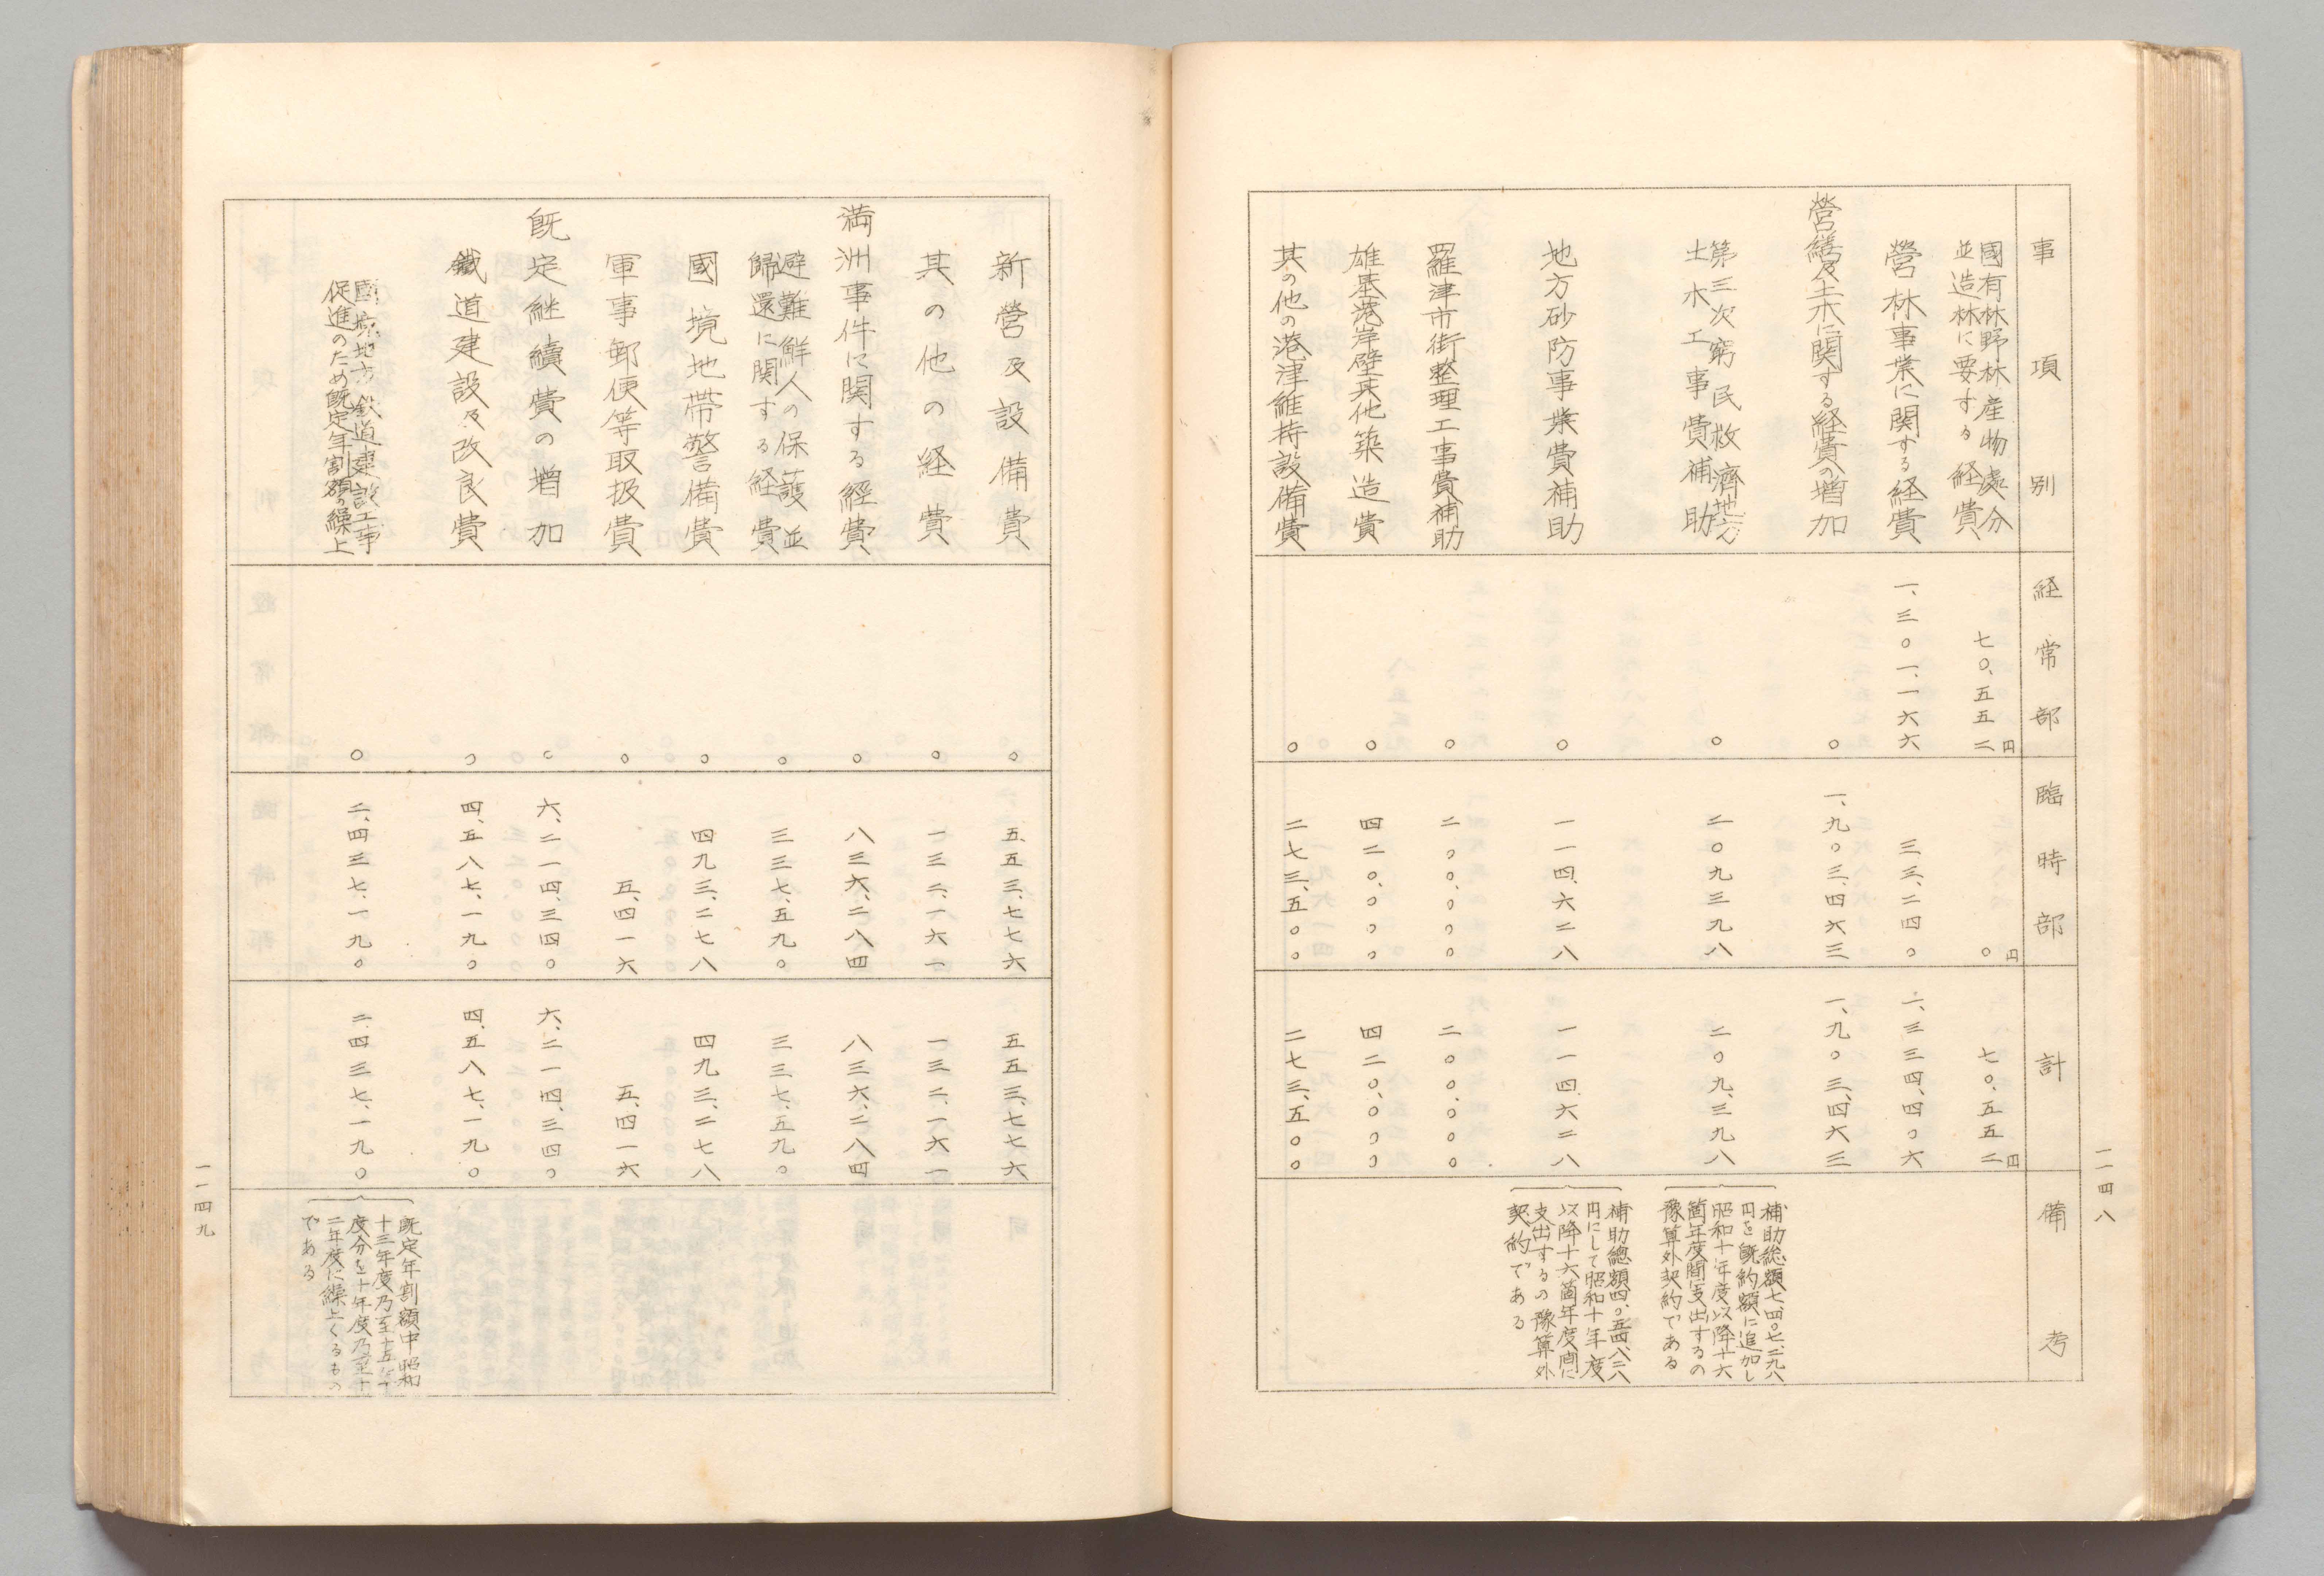 一一四八
事項別
経常部
臨時部
計
備考
國有林野林産物處分
並造林に要する経費
七〇、五五二円
〇円
七〇、五五二円
營林事業に関する経費
一、三〇一、一六六
三三、二四〇
一、三三四、四〇六
營繕及土木に関する経費の増加
〇
一、九〇三、四六三
一、九〇三、四六三
第三次窮民救濟地方
土木工事費補助
〇
二〇九三九八
二〇九、三九八
補助総額七四〇七、二九八
円を既約額に追加し
昭和十年度以降十六
箇年度間支出するの
豫算外契約である
地方砂防事業費補助
〇
一一四、六二八
一一四、六二八
補助總額四〇五四、八三八
円にして昭和十年度
以降十六箇年度間に
支出するの豫算外
契約である
羅津市街整理工事費補助
〇
二〇〇、〇〇〇
二〇〇、〇〇〇
雄基港岸壁其他築造費
〇
四二〇、〇〇〇
四二〇、〇〇〇
其の他の港津維持設備費
〇
二七三、五〇〇
二七三、五〇〇
新營及設備費
〇
五五三、七七六
五五三、七七六
其の他の経費
〇
一三二、一六一
一三二、一六一
満洲事件に関する經費
〇
八三六、二八四
八三六、二八四
避難鮮人の保護並
歸還に関する経費
〇
三三七、五九〇
三三七、五九〇
國境地帯警備費
〇
四九三、二七八
四九三、二七八
軍事郵便等取扱費
〇
五、四一六
五、四一六
既定継續費の増加
〇
六、二一四、三四〇
六、二一四、三四〇
鐵道建設及改良費
〇
四、五八七、一九〇
四、五八七、一九〇
國境地方鉄道建設工事
促進のため既定年割額の繰上
〇
二、四三七、一九〇
二、四三七、一九〇
既定年割額中昭和
十三年度乃至十五年
度分を十年度乃至十
二年度に繰上くるもの
である
一一四九